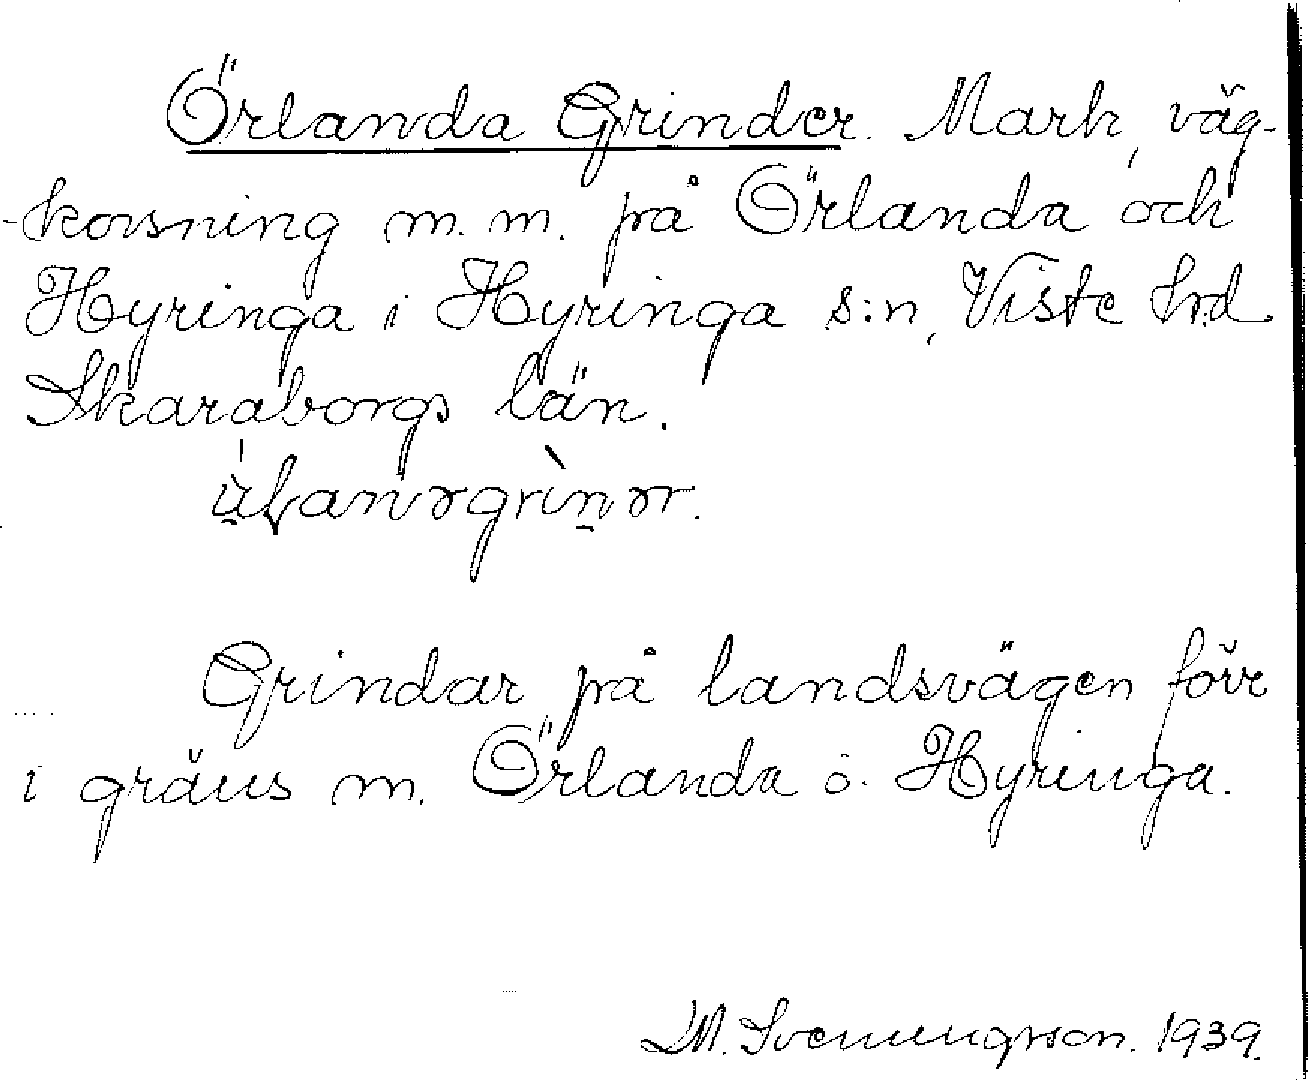 Örlanda Grinder. Mark, väg-
-korsning m.m. på Örlanda och
Hyringa i Hyringa s:n, Viste hrd
Skaraborgs län.
Grindar på landsvägen förr
i gräns m. Örlanda o. Hyringa.
Svenungsson. 1939.